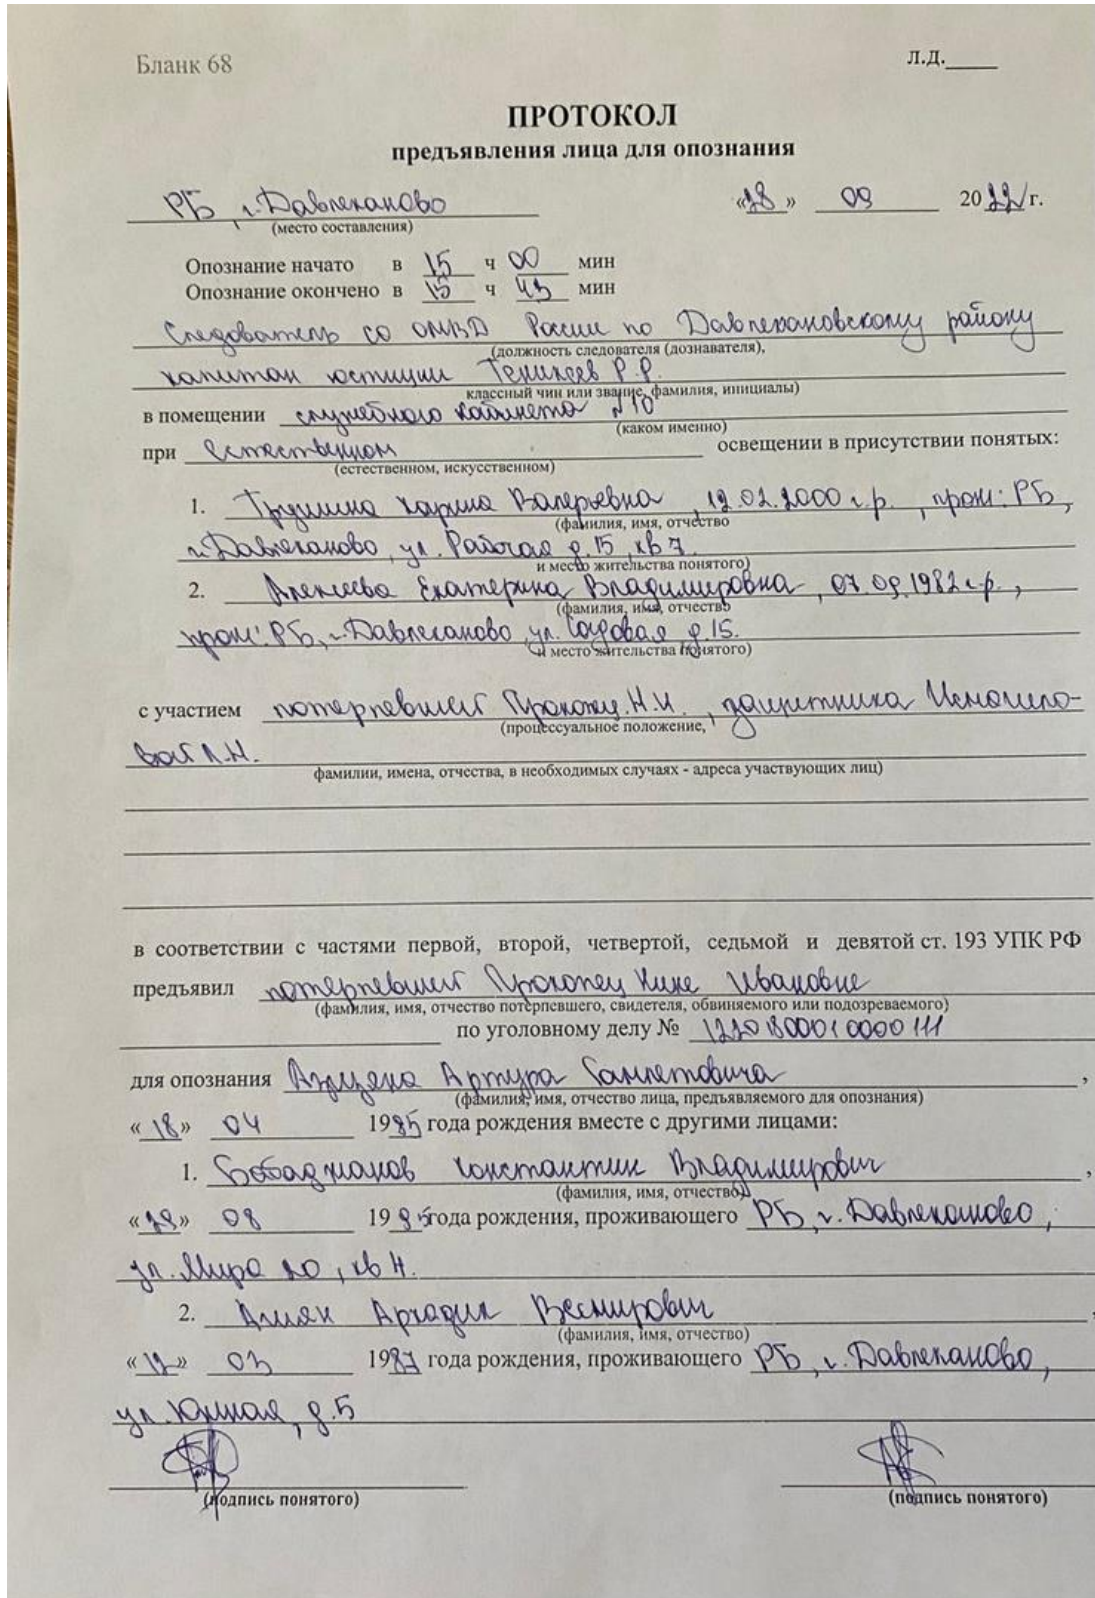 Бланк 68
Л.Д.____
ПРОТОКОЛ
предъявления лица для опознания
РБ, г. Давлеканово «28» 09 2022 г.
(место составления)
Опознание начато в 15 ч 00 мин
Опознание окончено в 15 ч 43 мин
Следователь СО ОМВД России по Давлекановскому району
(должность следователя (дознавателя),
капитан юстиции Р.Р.
классный чин или звание, фамилия, инициалы)
в помещении служебного кабинета №10
(каком именно)
при естественном освещении в присутствии понятых:
(естественном, искусственном)
1. Карина Валерьевна, 12.02.2000 г.р., прож: РБ,
(фамилия, имя, отчество
г. Давлеканово, ул. Рабочая д. 15, кв 7.
и место жительства понятого)
2. Алексеева Екатерина Владимировна, 07.09.1982 г.р.,
(фамилия, имя, отчество
прож: РБ, г. Давлеканово, ул. Садовая, д.15.
и место жительства понятого)
с участием потерпевшей Прокопец Н.И., защитника Исмагило-
(процессуальное положение,
вой Л.Н.
фамилии, имена, отчества, в необходимых случаях - адреса участвующих лиц)
в соответствии с частями первой, второй, четвертой, седьмой и девятой ст. 193 УПК РФ
предъявил потерпевшей Прокопец Нине Ивановне
(фамилия, имя, отчество потерпевшего, свидетеля, обвиняемого или подозреваемого)
по уголовному делу № 12201800010000111
для опознания Артура Самветовича,
(фамилия, имя, отчество лица, предъявляемого для опознания)
«18» 04 1985 года рождения вместе с другими лицами:
1. Бабаджанов Константин Владимирович,
(фамилия, имя, отчество)
08 1985 года рождения, проживающего РБ, г. Давлеканово,
ул. Мира 20, кв 4.
2. Аркадий,
(фамилия, имя, отчество)
«12» 03 1987 года рождения, проживающего РБ, г. Давлеканово,
ул. Южная, д. 5
(подпись понятого) (подпись понятого)